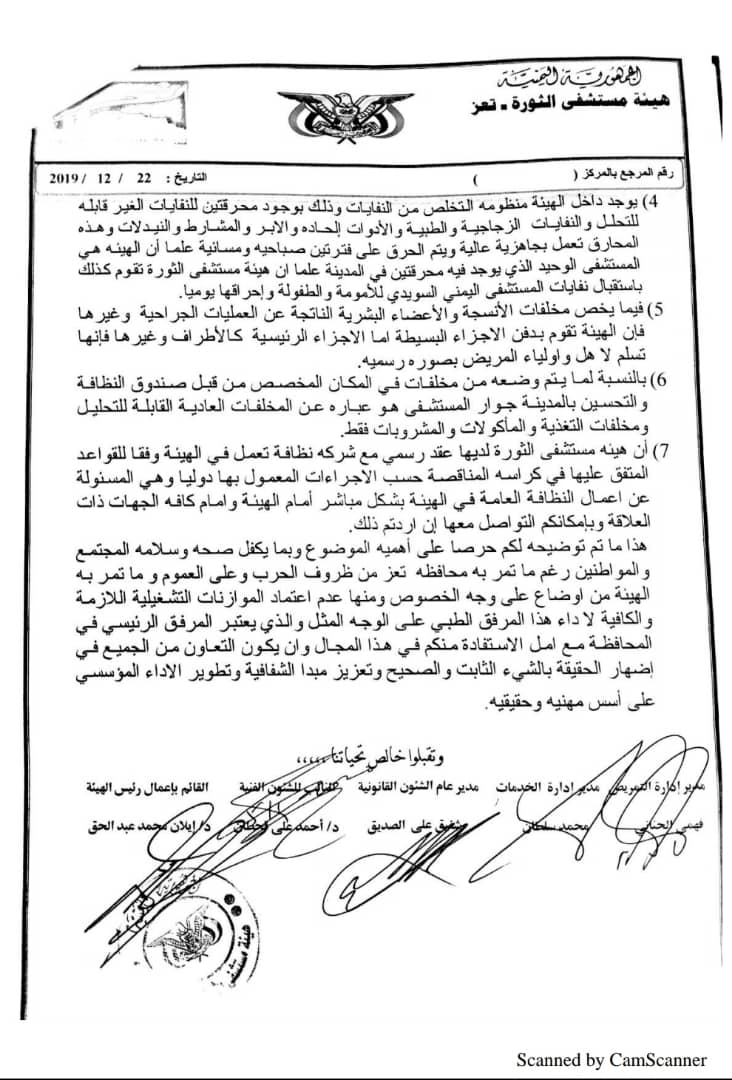 الجمهورية اليمنية
هيئة مستشفى الثورة - تعز
رقم المرجع بالمركز ( )
التاريخ : 22 / 12 / 2019
4) يوجد داخل الهيئة منظومه التخلص من النفايات وذلك بوجود محرقتين للنفايات الغير قابله
للتحلل والنفايات الزجاجية والطبية والأدوات إلحاده والابر والمشارط والنيدلات وهذه
المحارق تعمل بجاهزية عالية ويتم الحرق على فترتين صباحيه ومسائية علما أن الهيئه هي
المستشفى الوحيد الذي يوجد فيه محرقتين في المدينة علما ان هيئة مستشفى الثورة تقوم كذلك
باستقبال نفايات المستشفى اليمني السويدي للأمومة والطفولة وإحراقها يوميا.
5) فيما يخص مخلفات الأنسجة والأعضاء البشرية الناتجة عن العمليات الجراحية وغيرها
فإن الهيئة تقوم بدفن الاجزاء البسيطة اما الاجزاء الرئيسية كالأطراف وغيرها فإنها
تسلم لا هل واولياء المريض بصوره رسميه.
6) بالنسبة لما يتم وضعه من مخلفات في المكان المخصص من قبل صندوق النظافة
والتحسين بالمدينة جوار المستشفى هو عباره عن المخلفات العادية القابلة للتحليل
ومخلفات التغذية والمأكولات والمشروبات فقط.
7) أن هيئه مستشفى الثورة لديها عقد رسمي مع شركه نظافة تعمل في الهيئة وفقا للقواعد
المتفق عليها في كراسه المناقصة حسب الاجراءات المعمول بها دوليا وهي المسئولة
عن اعمال النظافة العامة في الهيئة بشكل مباشر أمام الهيئة وامام كافه الجهات ذات
العلاقة وبإمكانكم التواصل معها إن اردتم ذلك.
هذا ما تم توضيحه لكم حرصا على أهميه الموضوع وبما يكفل صحه وسلامه المجتمع
والمواطنين رغم ما تمر به محافظه تعز من ظروف الحرب وعلى العموم وما تمر به
الهيئة من اوضاع على وجه الخصوص ومنها عدم اعتماد الموازنات التشغيلية اللازمة
والكافية لا داء هذا المرفق الطبي على الوجه المثل والذي يعتبر المرفق الرئيسي في
المحافظة مع امل الاستفادة منكم في هذا المجال وان يكون التعاون من الجميع في
إضهار الحقيقة بالشيء الثابت والصحيح وتعزيز مبدا الشفافية وتطوير الاداء المؤسسي
على أسس مهنيه وحقيقيه.
وتقبلوا خالص تحياتنا ،،،،،
مدير إدارة التمريض مدير إدارة الخدمات مدير عام الشئون القانونية النائب للشئون الفنية القائم بإعمال رئيس الهيئة
فهمي الحناني محمد سلطان شفيق على الصديق د/ أحمد على قحطان د/ إيلان محمد عبد الحق
هيئة مستشفى
Scanned by CamScanner